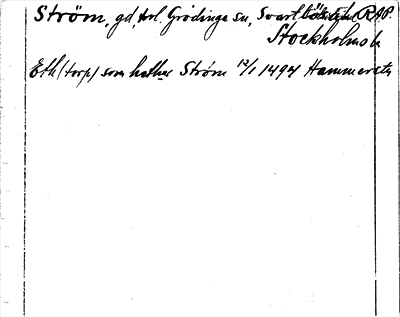 Ström, gd, Avl. Grödinge sn, Svartlösa hd RAP.
Stockholms l.
Ett (torp) som hether Strøm 12/1 1494 Hammersta